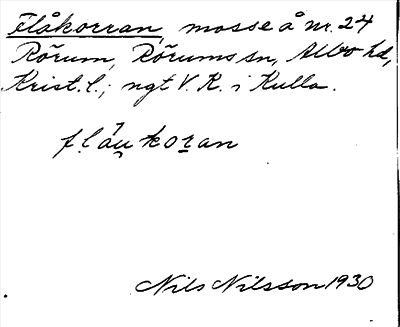 Flåkorran, mosse å nr. 24
Rörum, Rörums sn, Albo hd,
Krist. l.; ngt V. K. i Kulla.
flåu̯koran
Nils Nilsson 1930